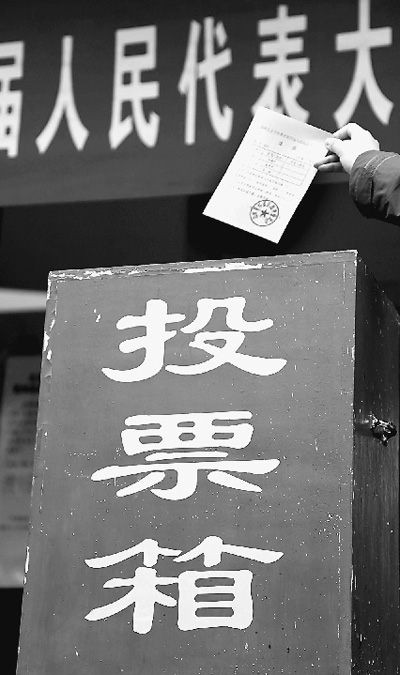 届人民代表大
投
票
箱